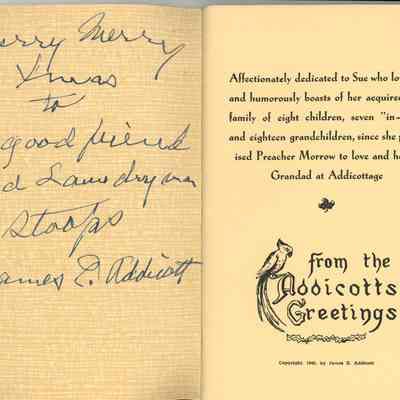 Merry Merry
Xmas
to
good friend
Laundryman
Stoops
James E. Addicott
Affectionately dedicated to Sue who lo
and humorously boasts of her acquired
family of eight children, seven "in-
and eighteen grandchildren, since she p
ised Preacher Morrow to love and h
Grandad at Addicottage
from the
Addicotts
Greetings
Copyright 1940, by James E. Addicott